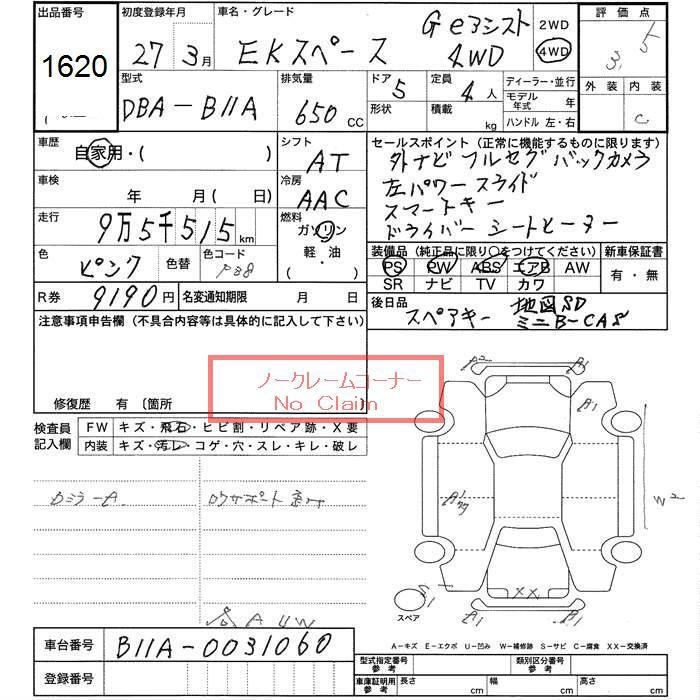 出品番号
1620
初度登録年月
27年 3月
車名・グレード
EKスペース
G eｱシスト
4WD
2WD
4WD
評価点
3.5
外装 内装
C
型式
DBA-B11A
排気量
650 CC
ドア 5
形状
定員 4人
積載 kg
ディーラー・並行
モデル年式 年
ハンドル 左・右
車歴
自家用・( )
シフト
AT
車検
年 月( 日)
冷房
AAC
走行
9万5千515km
燃料
ガソリン
軽・油
( )
色
ピンク
色替
色コード
P38
R券
9190円
名変通知期限 月 日
セールスポイント (正常に機能するものに限ります)
外ナビ フルセグ バックカメラ
左パワースライド
スマートキー
ドライバーシートヒーター
装備品 (純正品に限り○をつけてください)
新車保証書
PS PW ABS エアB AW
SR ナビ TV カワ
有・無
後日品
スペアキー 地図SD
ミニB-CAS
注意事項申告欄 (不具合内容等は具体的に記入して下さい)
ノークレームコーナー
No Claim
修復歴 有 〔箇所 〕
検査員
記入欄
FW キズ・飛石・ヒビ割・リペア跡・X要
内装 キズ・汚レ・コゲ・穴・スレ・キレ・破レ
ロサポート
A 4W
A2
A1
A1
A1
W2
XX
スペア
A1
A1
A-キズ E-エクボ U-凹み W-補修跡 S-サビ C-腐食 XX-交換済
車台番号
B11A-0031060
登録番号
型式指定番号
参考
類別区分番号
参考
車庫証明用
参考
長さ cm
幅 cm
高さ cm